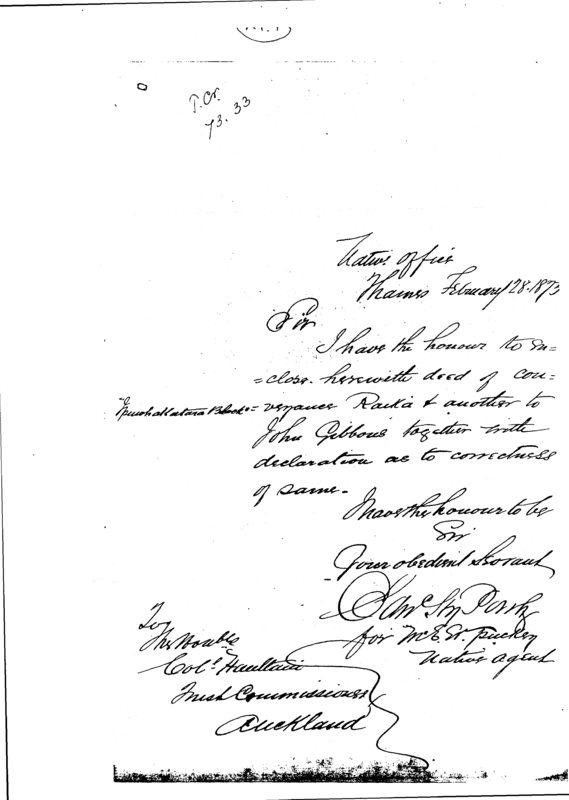 T. Cr.
73. 33
Native Office
Thames February 28. 1873
Sir
I have the honour to en=
=close herewith deed of con=
Block = veyance Raika & another to
John Gibbons together with
declaration as to correctness
of same.
I have the honour to be
Sir
Your obedient Servant
for Mr E. W. Puckey
Native Agent
To
The Honble
Colol Haultain
Trust Commissioner
Auckland